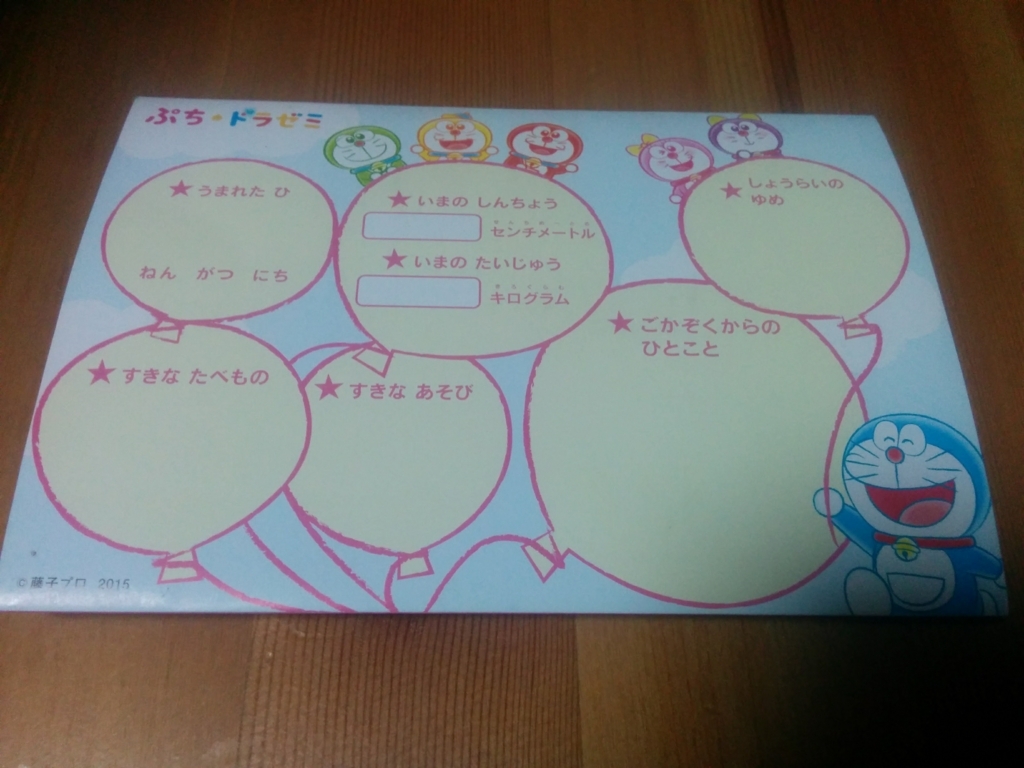 ぷち・ドラゼミ
★うまれた ひ
ねん がつ にち
★いまの しんちょう
センチメートル
★いまの たいじゅう
キログラム
★しょうらいの
ゆめ
★すきな たべもの
★すきな あそび
★ごかぞくからの
ひとこと
©藤子プロ 2015